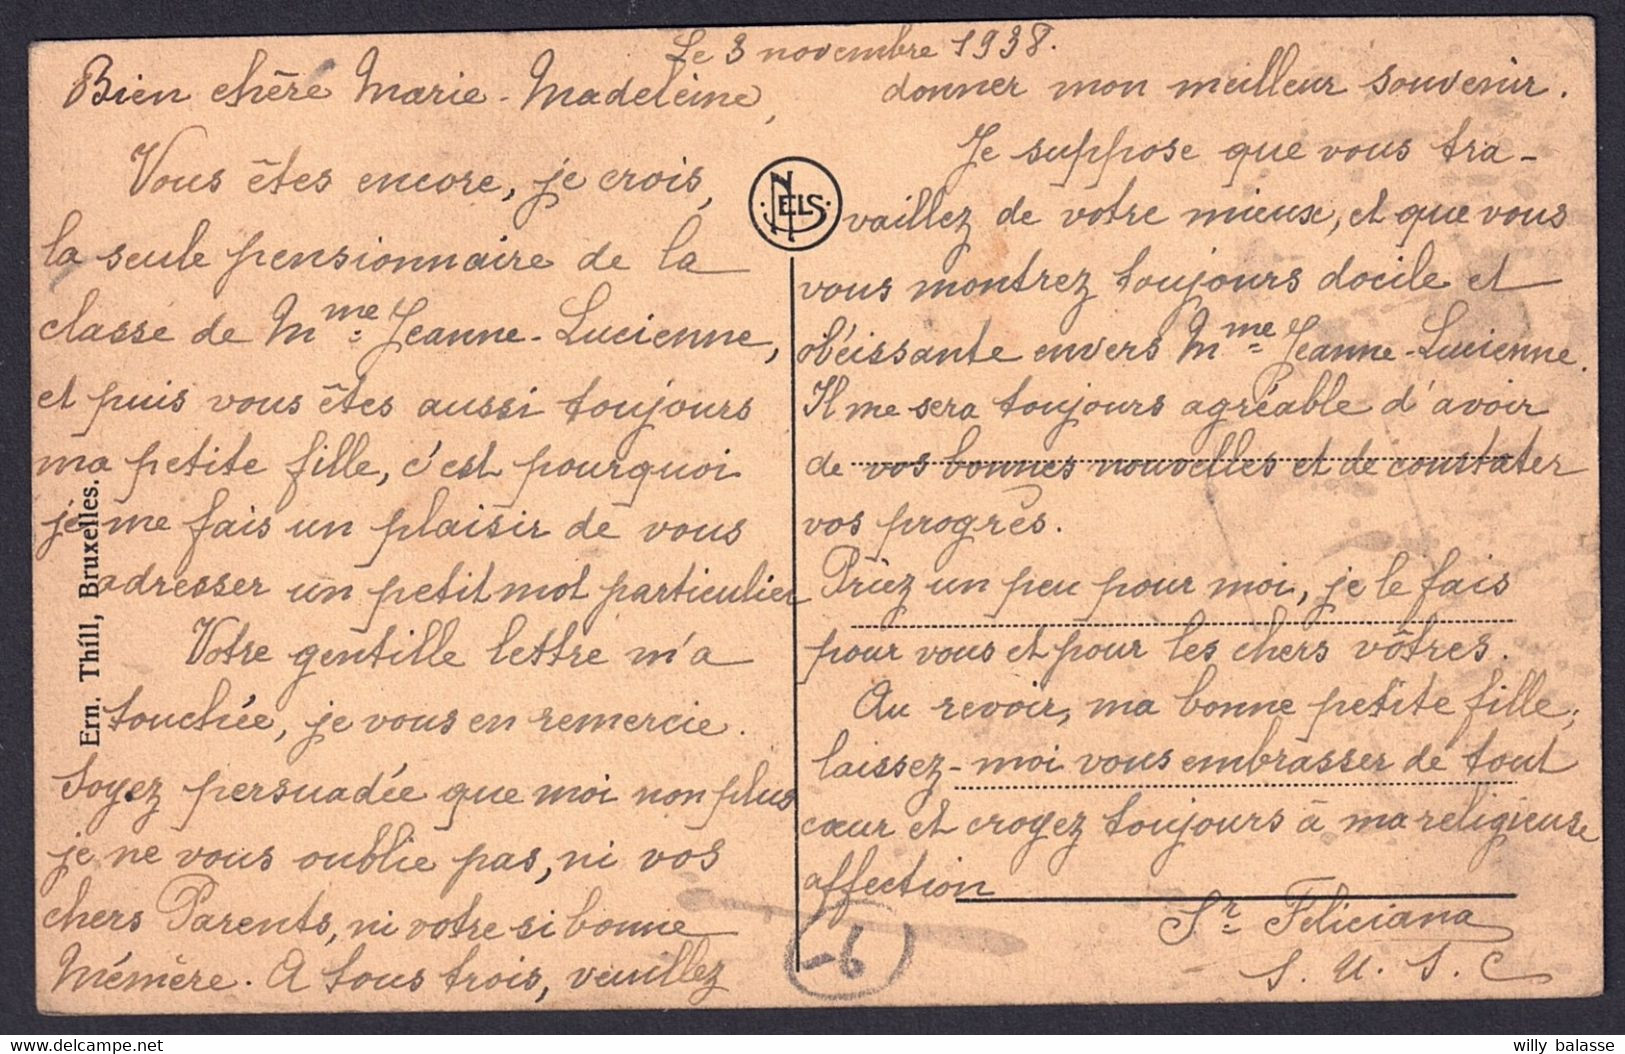 Le 3 novembre 1938.
Bien chère Marie-Madeleine,
Vous êtes encore, je crois,
la seule pensionnaire de la
classe de Mme Jeanne-Lucienne,
et puis vous êtes aussi toujours
ma petite fille, c'est pourquoi
je me fais un plaisir de vous
adresser un petit mot particulier
Votre gentille lettre m'a
touchée, je vous en remercie.
Soyez persuadée que moi non plus
je ne vous oublie pas, ni vos
chers Parents, ni votre si bonne
Mémère. A tous trois, veuillez
donner mon meilleur souvenir.
Je suppose que vous tra-
vaillez de votre mieux, et que vous
vous montrez toujours docile et
obéissante envers Mme Jeanne-Lucienne.
Il me sera toujours agréable d'avoir
de vos bonnes nouvelles et de constater
vos progrès.
Priez un peu pour moi, je le fais
pour vous et pour les chers vôtres.
Au revoir, ma bonne petite fille,
laissez-moi vous embrasser de tout
cœur et croyez toujours à ma religieuse
affection
Sr Feliciana
S. U. S. C
NELS
Ern. Thill, Bruxelles.
-6
willy balasse